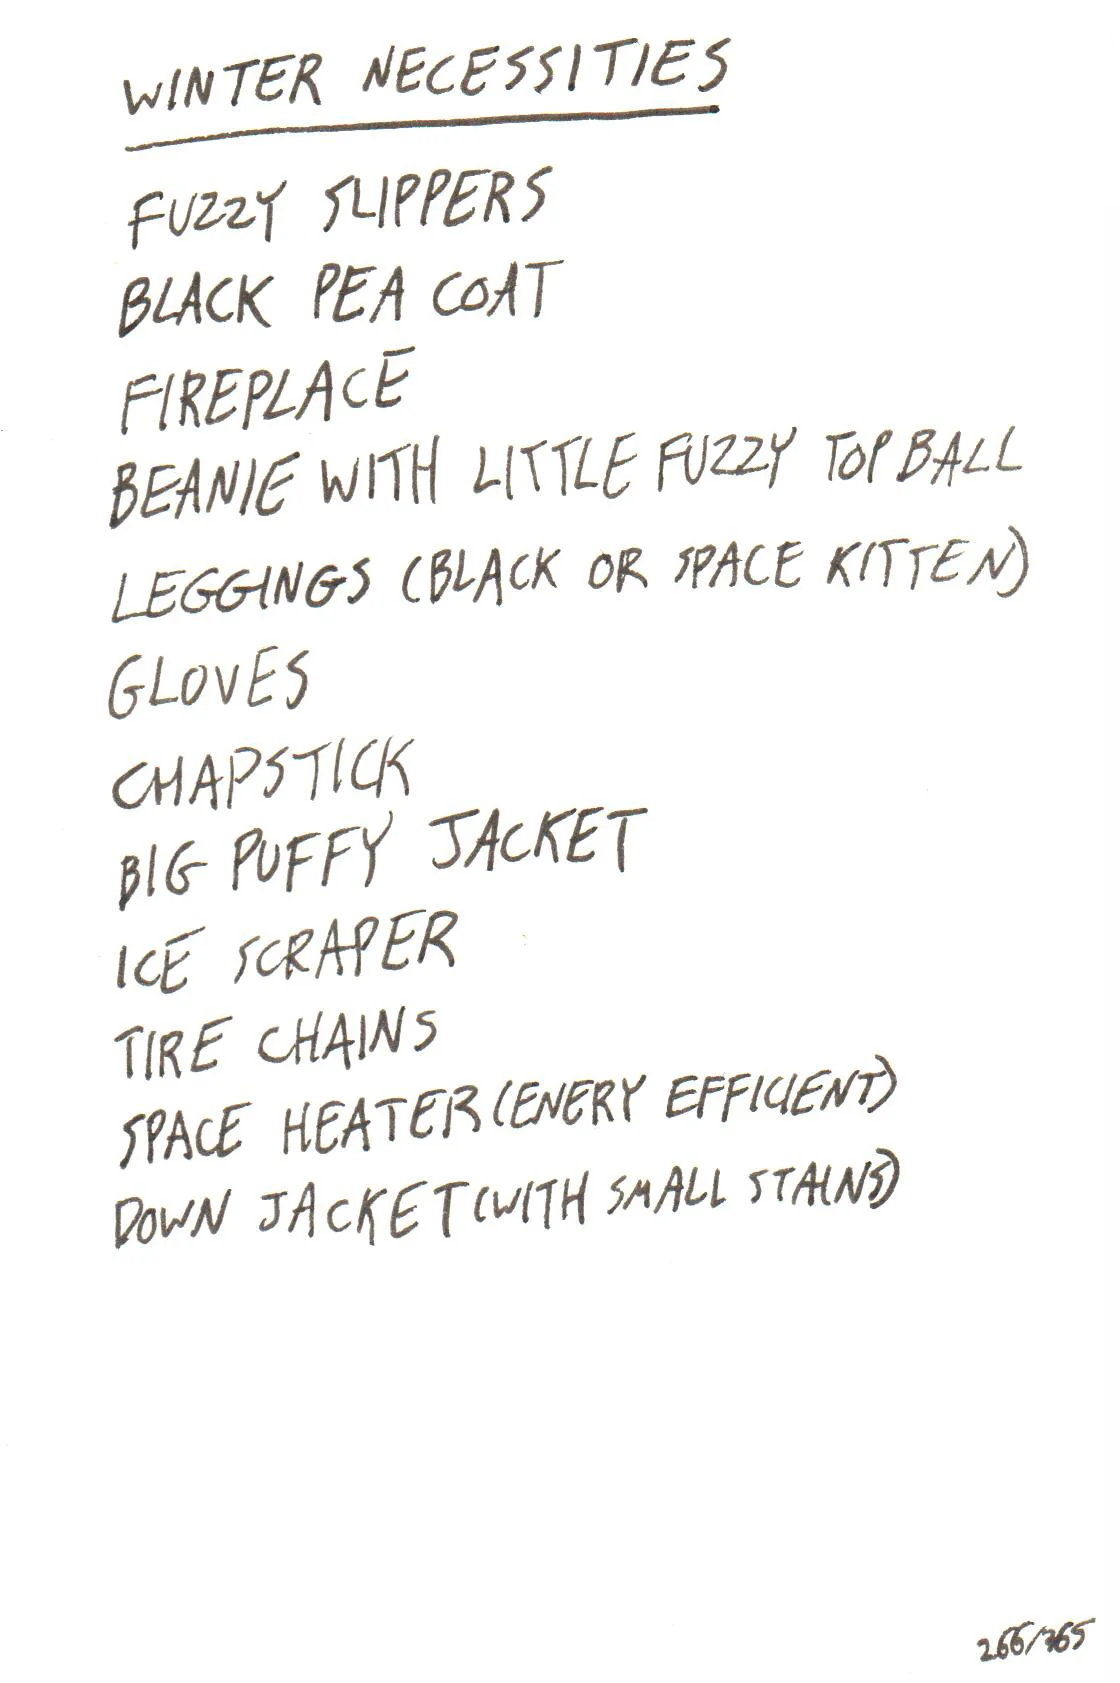 WINTER NECESSITIES
FUZZY SLIPPERS
BLACK PEA COAT
FIREPLACE
BEANIE WITH LITTLE FUZZY TOP BALL
LEGGINGS (BLACK OR SPACE KITTEN)
GLOVES
CHAPSTICK
BIG PUFFY JACKET
ICE SCRAPER
TIRE CHAINS
SPACE HEATER (ENERY EFFICIENT)
DOWN JACKET (WITH SMALL STAINS)
266/365